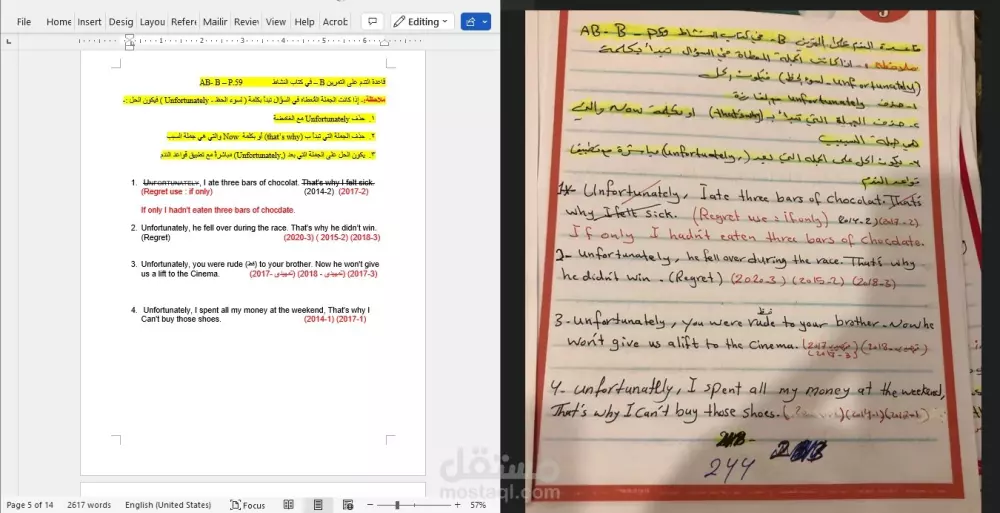 File Home Insert Desig Layou Refere Mailir Reviev View Help Acrob Editing
قاعدة الندم على التمرين B – في كتاب النشاط AB- B – P.59
ملاحظة:. إذا كانت الجملة المُعطاه في السؤال تبدأ بكلمة ( لسوء الحظ - Unfortunately ) فيكون الحل :-
١. حذف Unfortunately مع الفامضة
٢. حذف الجملة التي تبدأ ب (that's why) أو بكلمة Now والتي هي جملة السبب
٣. يكون الحل على الجملة التي بعد (Unfortunately,) مباشرةً مع تطبيق قواعد الندم
1. UNFORTUNATELY, I ate three bars of chocolat. That's why I felt sick.
(Regret use : if only) (2014-2) (2017-2)
If only I hadn't eaten three bars of chocdate.
2. Unfortunately, he fell over during the race. That's why he didn't win.
(Regret) (2020-3) ( 2015-2) (2018-3)
3. Unfortunately, you were rude (فظ) to your brother. Now he won't give
us a lift to the Cinema. (2017- تكميلي) (2018 - تكميلي) (2017-3)
4. Unfortunately, I spent all my money at the weekend, That's why I
Can't buy those shoes. (2014-1) (2017-1)
Page 5 of 14 2617 words English (United States) Focus 57%
قاعدة الندم على التمرين B- في كتاب النشاط AB- B - P59
ملاحظة :. إذا كانت الجملة المعطاة في السؤال تبدأ بكلمة
(unfortunately - لسوء الحظ) فيكون الحل
١. حذف unfortunately مع الفاصلة
٢. حذف الجملة التي تبدأ بـ (that's why) أو بكلمة Now والتي
هي جملة السبب
٣. يكون الحل على الجملة التي بعد (unfortunately,) مباشرة مع تطبيق
قواعد الندم
1- Unfortunately, I ate three bars of chocolat. That's
why I felt sick. (Regret use : if only) (2014-2) (2017-2)
If only I hadn't eaten three bars of chocdate.
2- unfortunately, he fell over during the race. That's why
he didn't win. (Regret) (2020-3) (2015-2) (2018-3)
فظ
3- unfortunately, you were rude to your brother. Now he
won't give us a lift to the Cinema.
(2017-3)
4- unfortunatlly, I spent all my money at the weekend,
That's why I Can't buy those shoes.
244
مستقل
mostaql.com